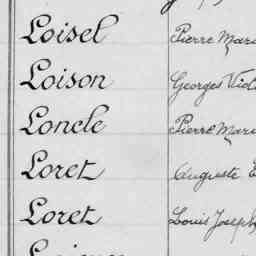 Loisel Pierre Mari
Loison Georges Vict
Loncle Pierre Mari
Loret Auguste
Loret Louis Joseph